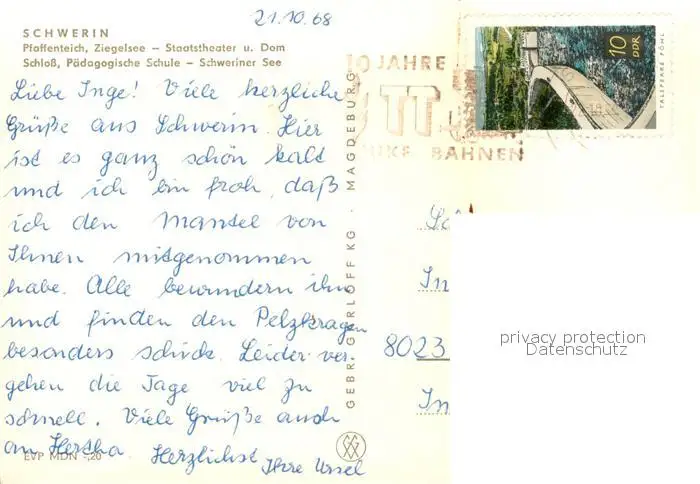 21.10.68
SCHWERIN
Pfaffenteich, Ziegelsee – Staatstheater u. Dom
Schloß, Pädagogische Schule – Schweriner See
Liebe Inge! Viele herzliche
Grüße aus Schwerin. Hier
ist es ganz schön kalt
und ich bin froh, daß
ich den Mantel von
Ihnen mitgenommen
habe. Alle bewundern ihn
und finden den Pelzkragen
besonders schick. Leider ver-
gehen die Tage viel zu
schnell. Viele Grüße auch
an Hertha.
Herzlichst Ihre Ursel
EVP MDN -,20
GEBR. GARLOFF KG · MAGDEBURG
10 JAHRE
TT
BAHNEN
10 DDR
TALSPERRE PÖHL
In
8023
In
privacy protection
Datenschutz